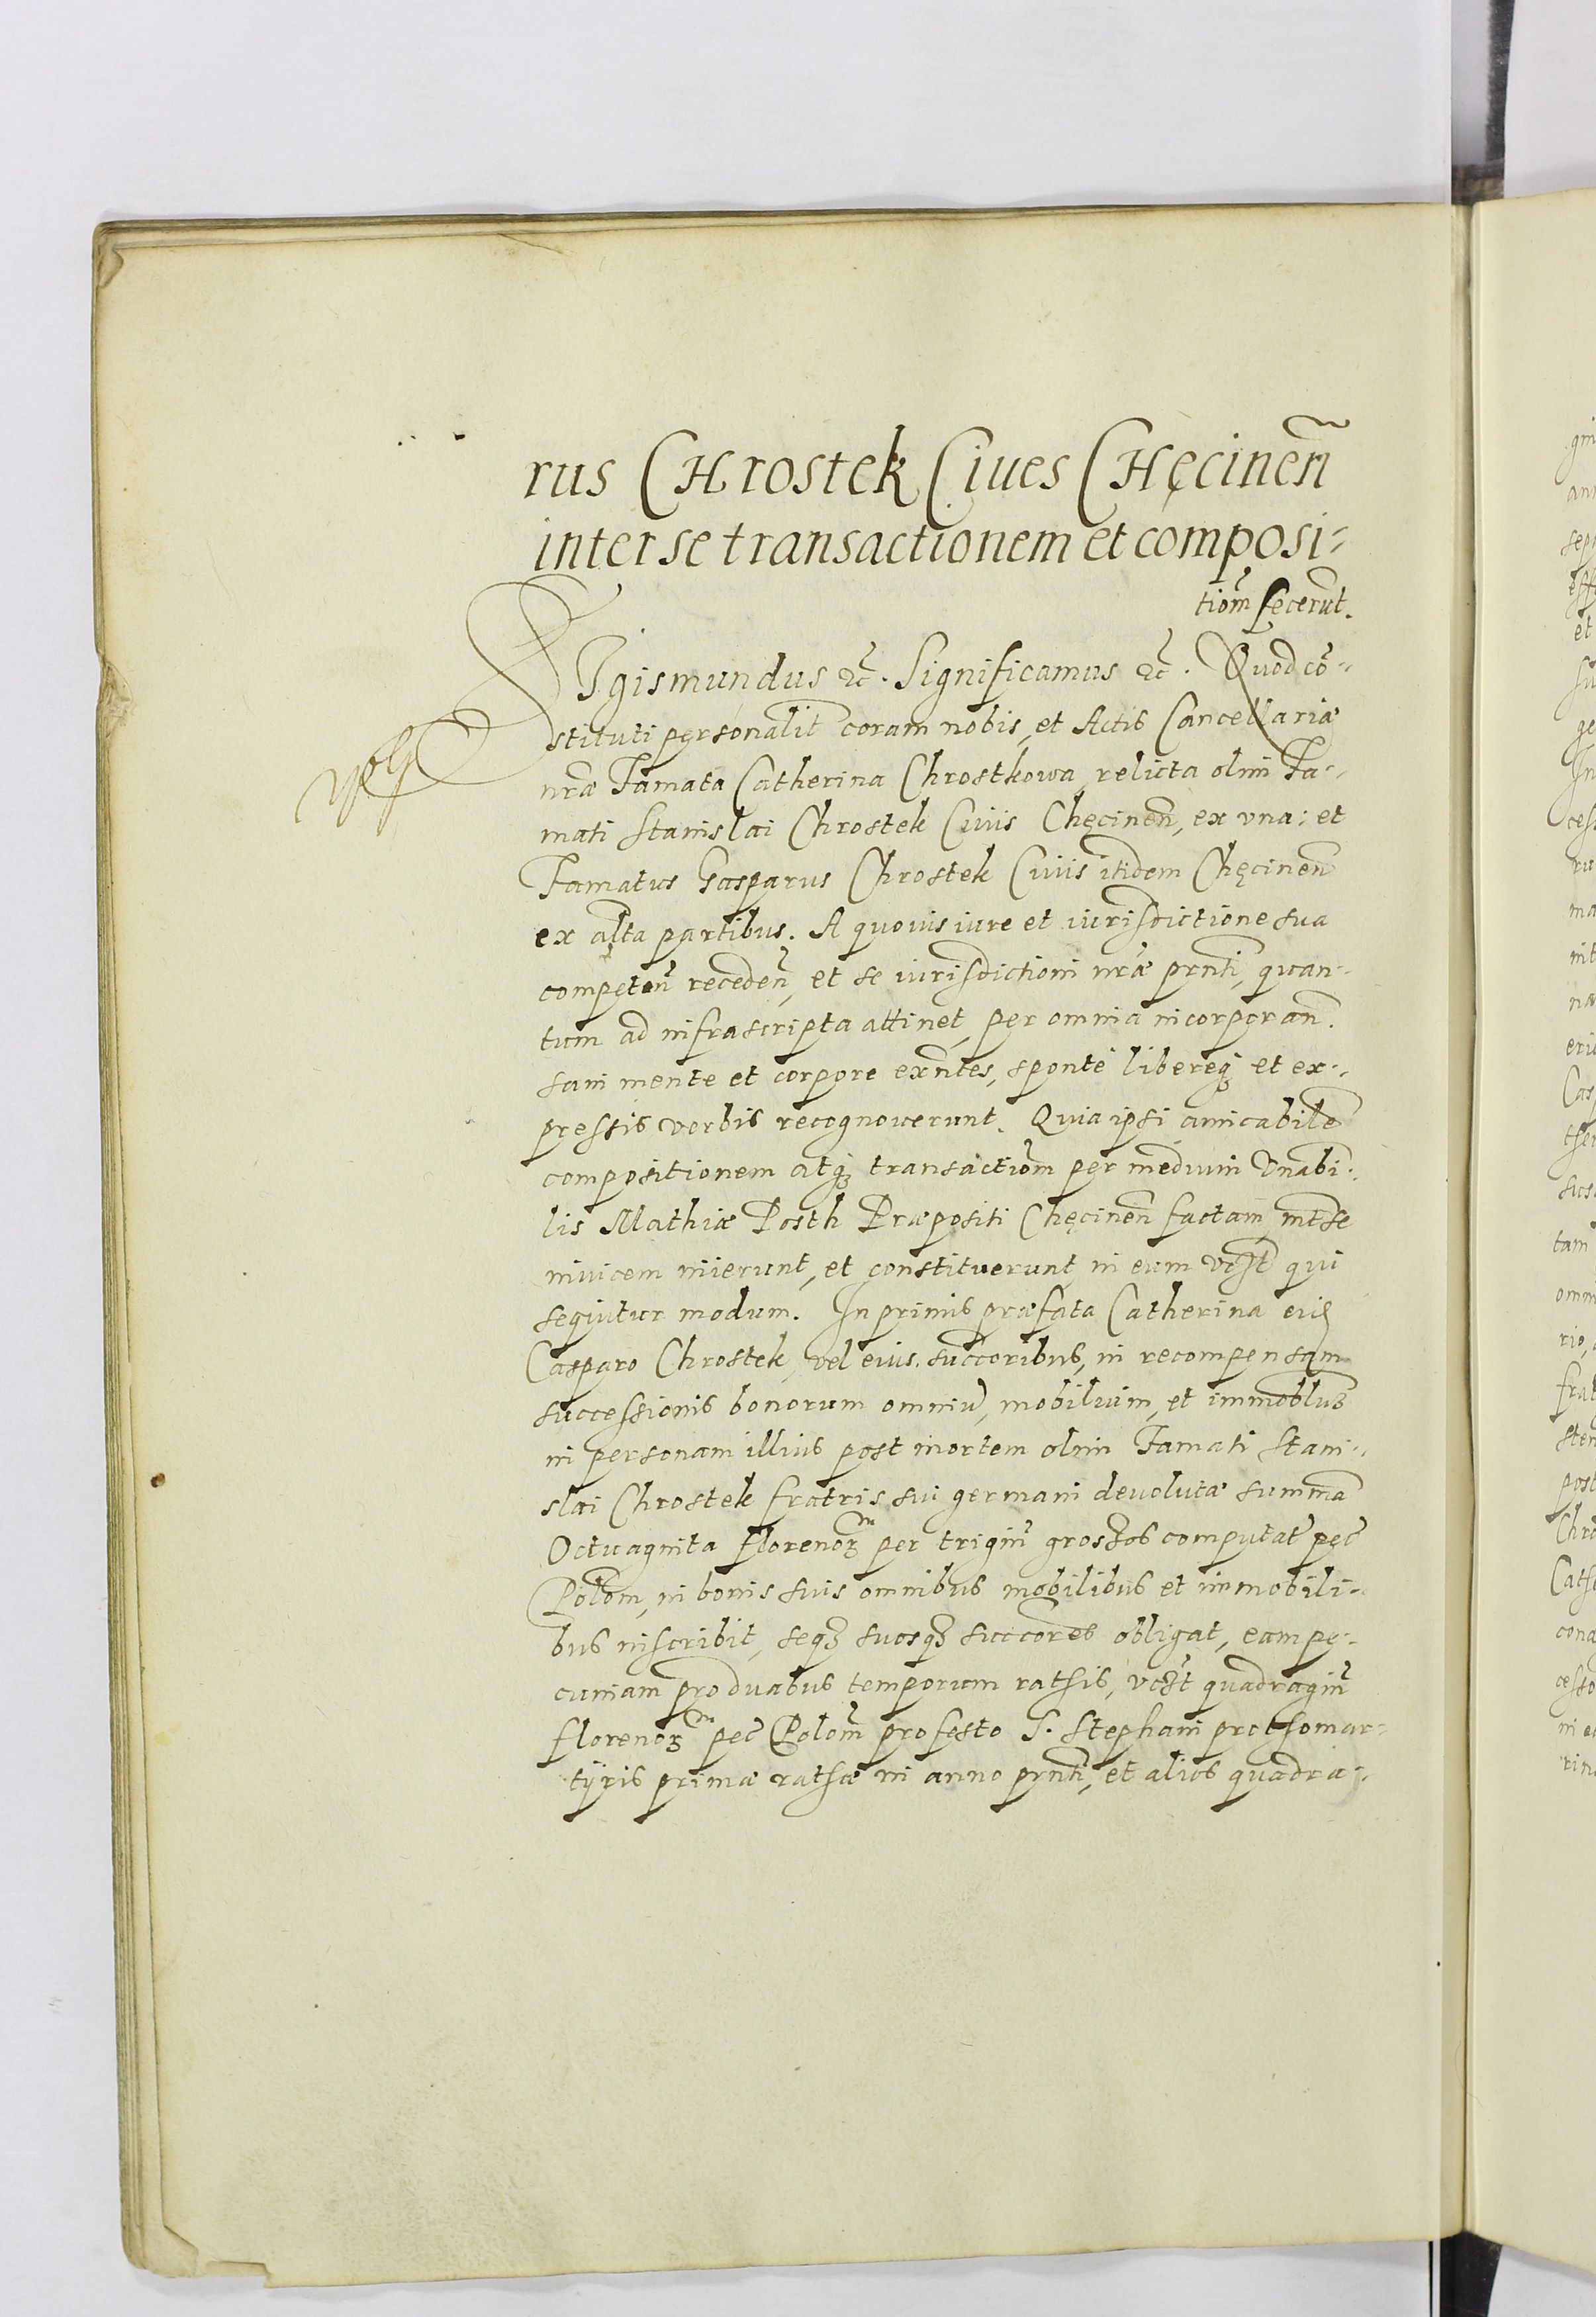 rus CHrostek Ciues CHęcinen̄
inter se transactionem et composi-
tiom̄ fecerūt.
SIgismundus ⁊c̄. Significamus ⁊c̄. Quod cō-
stituti personalit̄ coram nobis, et Actis Cancellariæ
nr̄æ Famata Catherina Chrostkowa, relicta olim Fa-
mati Stanislai Chrostek Ciuis Chęcinen̄, ex vna: et
Famatus Gasparus Chrostek Ciuis itidem Chęcinen̄
ex alt̄a partibus. A quouis iure et iurisdictione sua
competen̄ receden̄, et se iurisdictioni nr̄æ prn̄ti, quan-
tum ad infrascripta attinet, per omnia incorporan̄.
sani mente et corpore exn̄tes, sponte libereqꝫ et ex-
pressis verbis recognouerunt. Quia ipsi amicabilē
compositionem atqꝫ transactiom̄ per medium Vn̄abi-
lis Mathiæ Posth Præpositi Chęcinen̄ factam int̄ se
inuicem inierunt, et constituerunt in eum vcꝫt qui
sequitur modum. In primis præfata Catherina eid̄
Casparo Chrostek, vel eius succ̄oribus, in recompensam
successionis bonorum omniū, mobilium, et immobl̄ium
in personam illius post mortem olim Famati Stani-
slai Chrostek fratris sui germani deuolutæ summā
Octuaginta florenoꝝ per trigin̄ grossos computat̄ pec̄
Polon̄, in bonis suis omnibus mobilibus et immobili-
bus inscribit, seqꝫ suosqꝫ succ̄ores obligat, eam pe-
cuniam pro duabus temporum rathis, vcꝫt quadragin̄
florenoꝝ pec̄ Polon̄ pro festo S. Stephani prothomar-
tyris primæ rathæ in anno prn̄ti, et alios quadra-